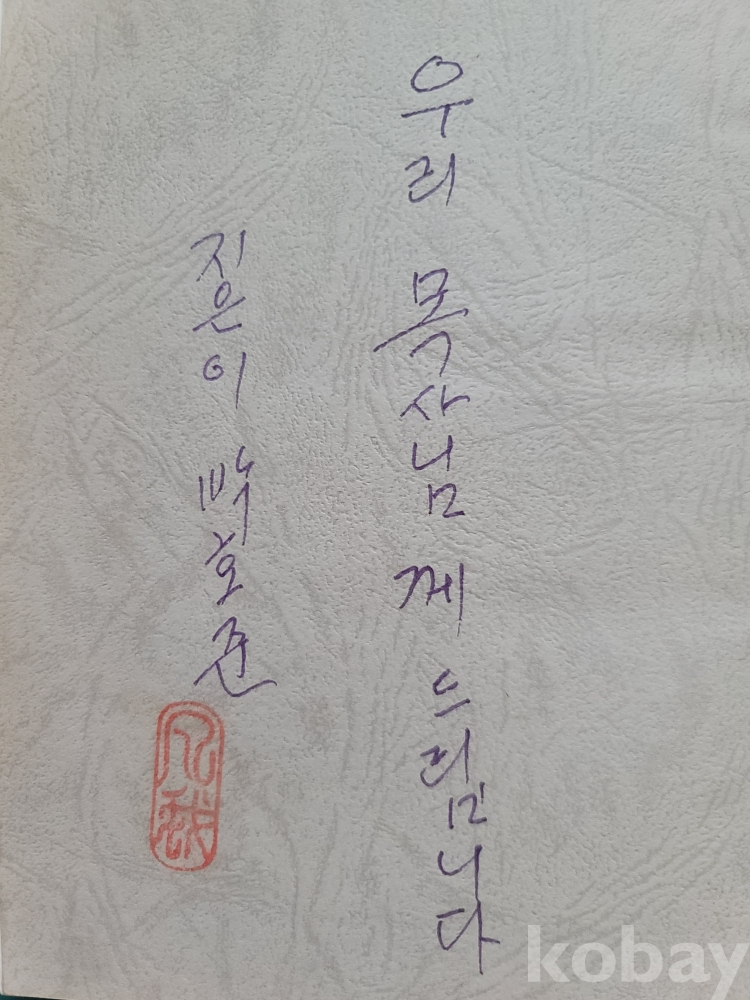 우리 목사님께 드립니다
지은이 박호준
kobay